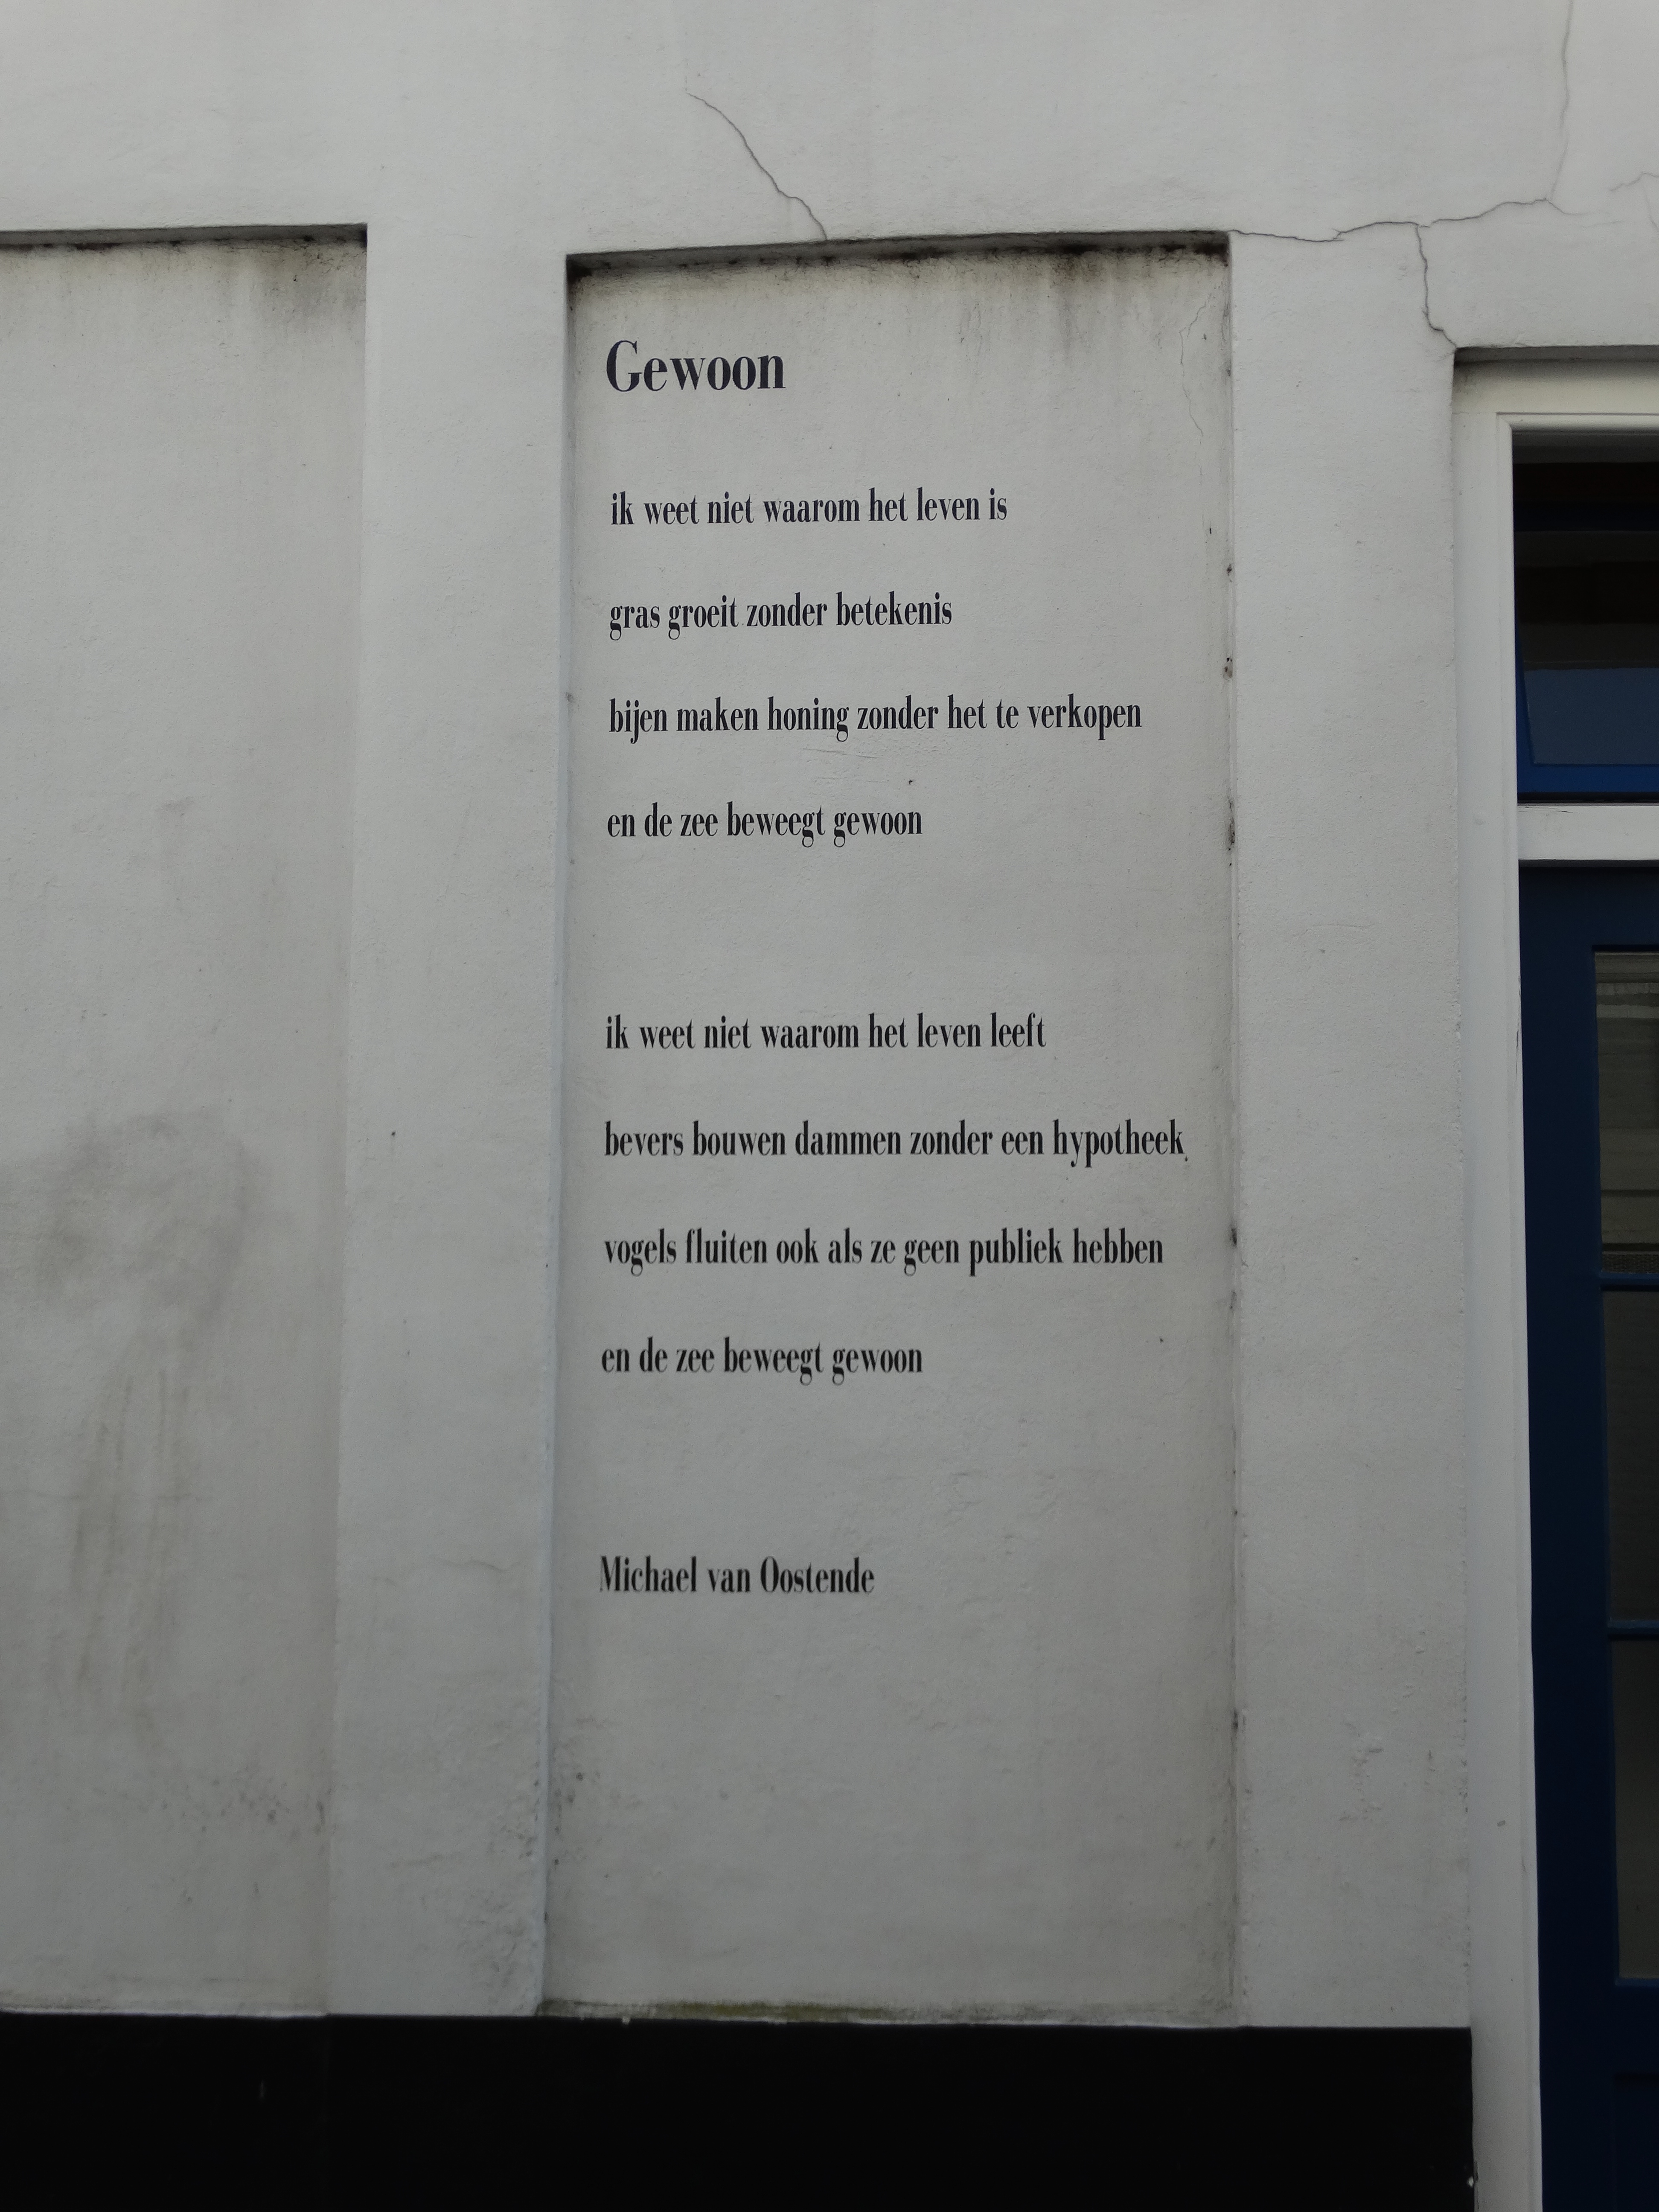 Gewoon
ik weet niet waarom het leven is
gras groeit zonder betekenis
bijen maken honing zonder het te verkopen
en de zee beweegt gewoon
ik weet niet waarom het leven leeft
bevers bouwen dammen zonder een hypotheek
vogels fluiten ook als ze geen publiek hebben
en de zee beweegt gewoon
Michael van Oostende